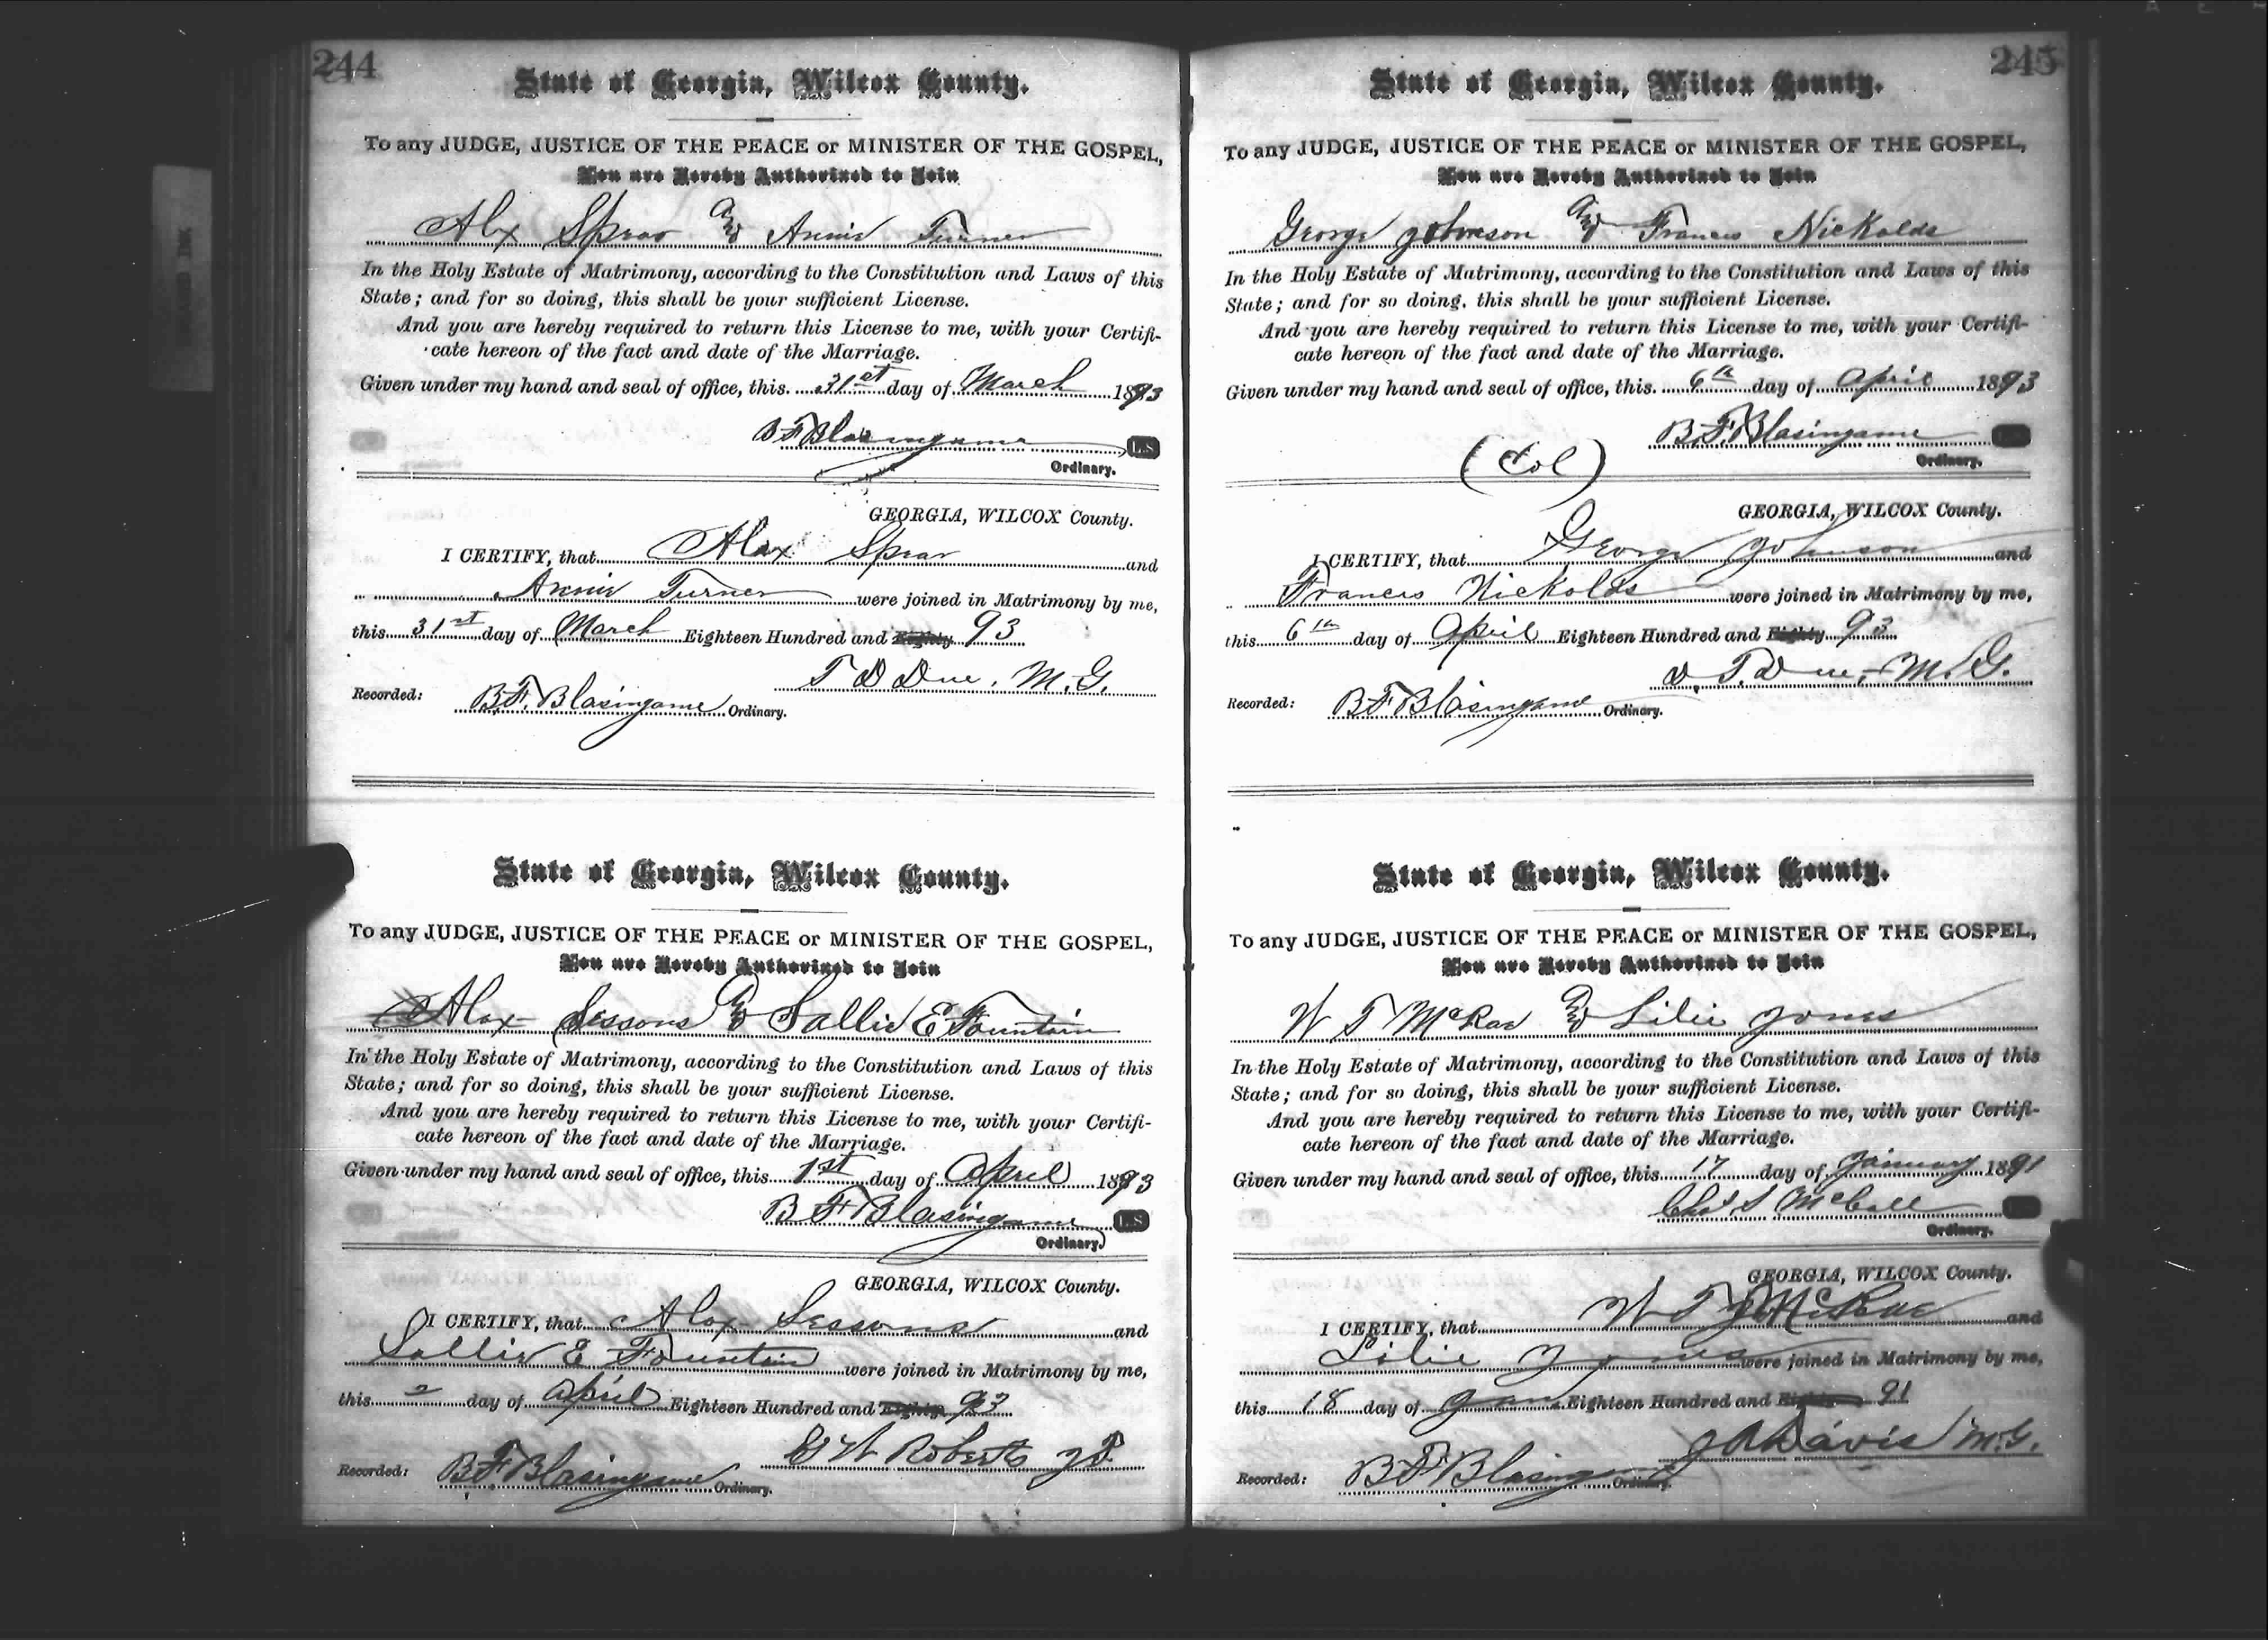 244
State of Georgia, Wilcox County.
To any JUDGE, JUSTICE OF THE PEACE or MINISTER OF THE GOSPEL,
You are Hereby Authorized to Join
Alex Spear & Annie Turner
In the Holy Estate of Matrimony, according to the Constitution and Laws of this
State; and for so doing, this shall be your sufficient License.
And you are hereby required to return this License to me, with your Certifi-
cate hereon of the fact and date of the Marriage.
Given under my hand and seal of office, this 31st day of March 1893
B F Blasingame L.S
Ordinary.
GEORGIA, WILCOX County.
I CERTIFY, that Alex Spear and
Annie Turner were joined in Matrimony by me,
this 31st day of March Eighteen Hundred and Eighty 93
T D Due, M.G.
Recorded: B.F. Blasingame Ordinary.
State of Georgia, Wilcox County.
To any JUDGE, JUSTICE OF THE PEACE or MINISTER OF THE GOSPEL,
You are Hereby Authorized to Join
Alex Sessons & Sallie E Fountain
In the Holy Estate of Matrimony, according to the Constitution and Laws of this
State; and for so doing, this shall be your sufficient License.
And you are hereby required to return this License to me, with your Certifi-
cate hereon of the fact and date of the Marriage.
Given under my hand and seal of office, this 1st day of April 1893
B F Blasingame L.S
Ordinary.
GEORGIA, WILCOX County.
I CERTIFY, that Alex Sessons and
Sallie E Fountain were joined in Matrimony by me,
this 2 day of April Eighteen Hundred and Eighty 93
W Roberts JP
Recorded: B F Blasingame Ordinary.
245
State of Georgia, Wilcox County.
To any JUDGE, JUSTICE OF THE PEACE or MINISTER OF THE GOSPEL,
You are Hereby Authorized to Join
George Johnson & Frances Nickolds
In the Holy Estate of Matrimony, according to the Constitution and Laws of this
State; and for so doing, this shall be your sufficient License.
And you are hereby required to return this License to me, with your Certifi-
cate hereon of the fact and date of the Marriage.
Given under my hand and seal of office, this 6th day of April 1893
B.F. Blasingame
(Col) Ordinary.
GEORGIA, WILCOX County.
I CERTIFY, that George Johnson and
Frances Nickolds were joined in Matrimony by me,
this 6th day of April Eighteen Hundred and Eighty 93
D. T. Due, M.G.
Recorded: B F Blasingame Ordinary.
State of Georgia, Wilcox County.
To any JUDGE, JUSTICE OF THE PEACE or MINISTER OF THE GOSPEL,
You are Hereby Authorized to Join
W T McRae & Lilie Jones
In the Holy Estate of Matrimony, according to the Constitution and Laws of this
State; and for so doing, this shall be your sufficient License.
And you are hereby required to return this License to me, with your Certifi-
cate hereon of the fact and date of the Marriage.
Given under my hand and seal of office, this 17 day of January 1891
Chas S McCall
Ordinary.
GEORGIA, WILCOX County.
I CERTIFY, that W T McRae and
Lilie Jones were joined in Matrimony by me,
this 18 day of Jan. Eighteen Hundred and 91
J A Davis M.G.
Recorded: B F Blasingame Ordinary.